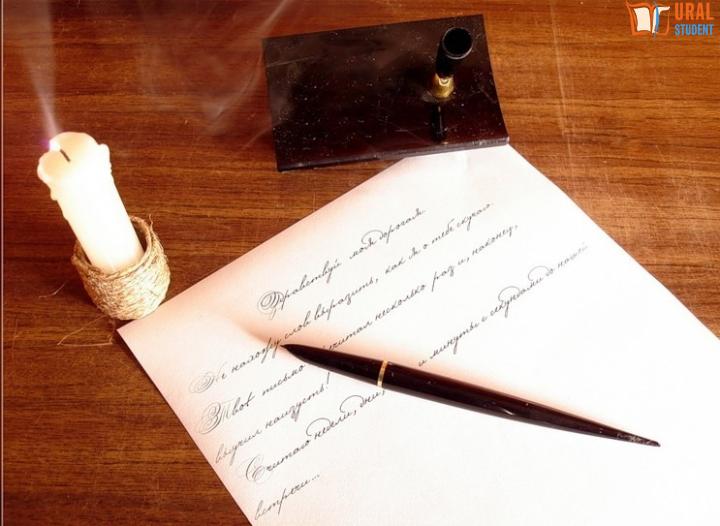 URAL
STUDENT
Здравствуй моя дорогая
Не нахожу слов выразить, как я о тебе скучаю.
Твоё письмо считал несколько раз и, наконец,
выучил наизусть!
Считаю недели, дни, и минуты с секундами до нашей
встречи...